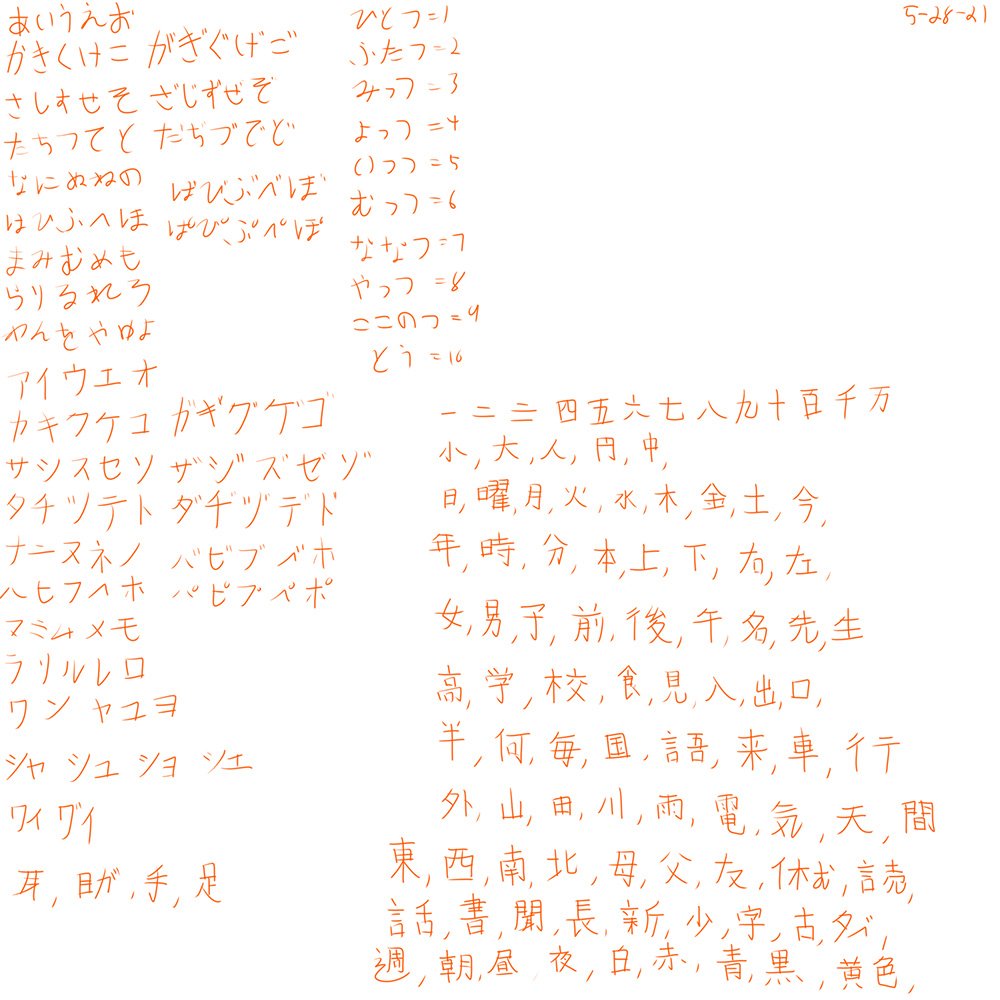 5-28-21
あいうえお
かきくけこ がぎぐげご
さしすせそ ざじずぜぞ
たちつてと だぢづでど
なにぬねの
ばびぶべぼ
はひふへほ ぱぴぷぺぽ
まみむめも
らりるれろ
わんをやゆよ
ひとつ=1
ふたつ=2
みっつ=3
よっつ=4
いつつ=5
むっつ=6
ななつ=7
やっつ=8
ここのつ=9
とう=10
アイウエオ
カキクケコ ガギグゲゴ
サシスセソ ザジズゼゾ
タチツテト ダヂヅデド
ナニヌネノ バビブベホ
ハヒフヘホ パピプペポ
マミムメモ
ラリルレロ
ワン ヤユヨ
シャ シュ ショ シェ
クィ グィ
耳, 目が, 手, 足
一二三四五六七八九十百千万
小, 大, 人, 円, 中,
日, 曜, 月, 火, 水, 木, 金, 土, 今,
年, 時, 分, 本, 上, 下, 右, 左,
女, 男, 子, 前, 後, 午, 名, 先, 生
高, 学, 校, 食, 見, 入, 出, 口,
半, 何, 毎, 国, 語, 来, 車, 行
外, 山, 田, 川, 雨, 電, 気, 天, 間
東, 西, 南, 北, 母, 父, 友, 休む, 読,
話, 書, 聞, 長, 新, 少, 字, 古, タバ,
週, 朝, 昼 夜, 白, 赤, 青, 黒, 黄色,